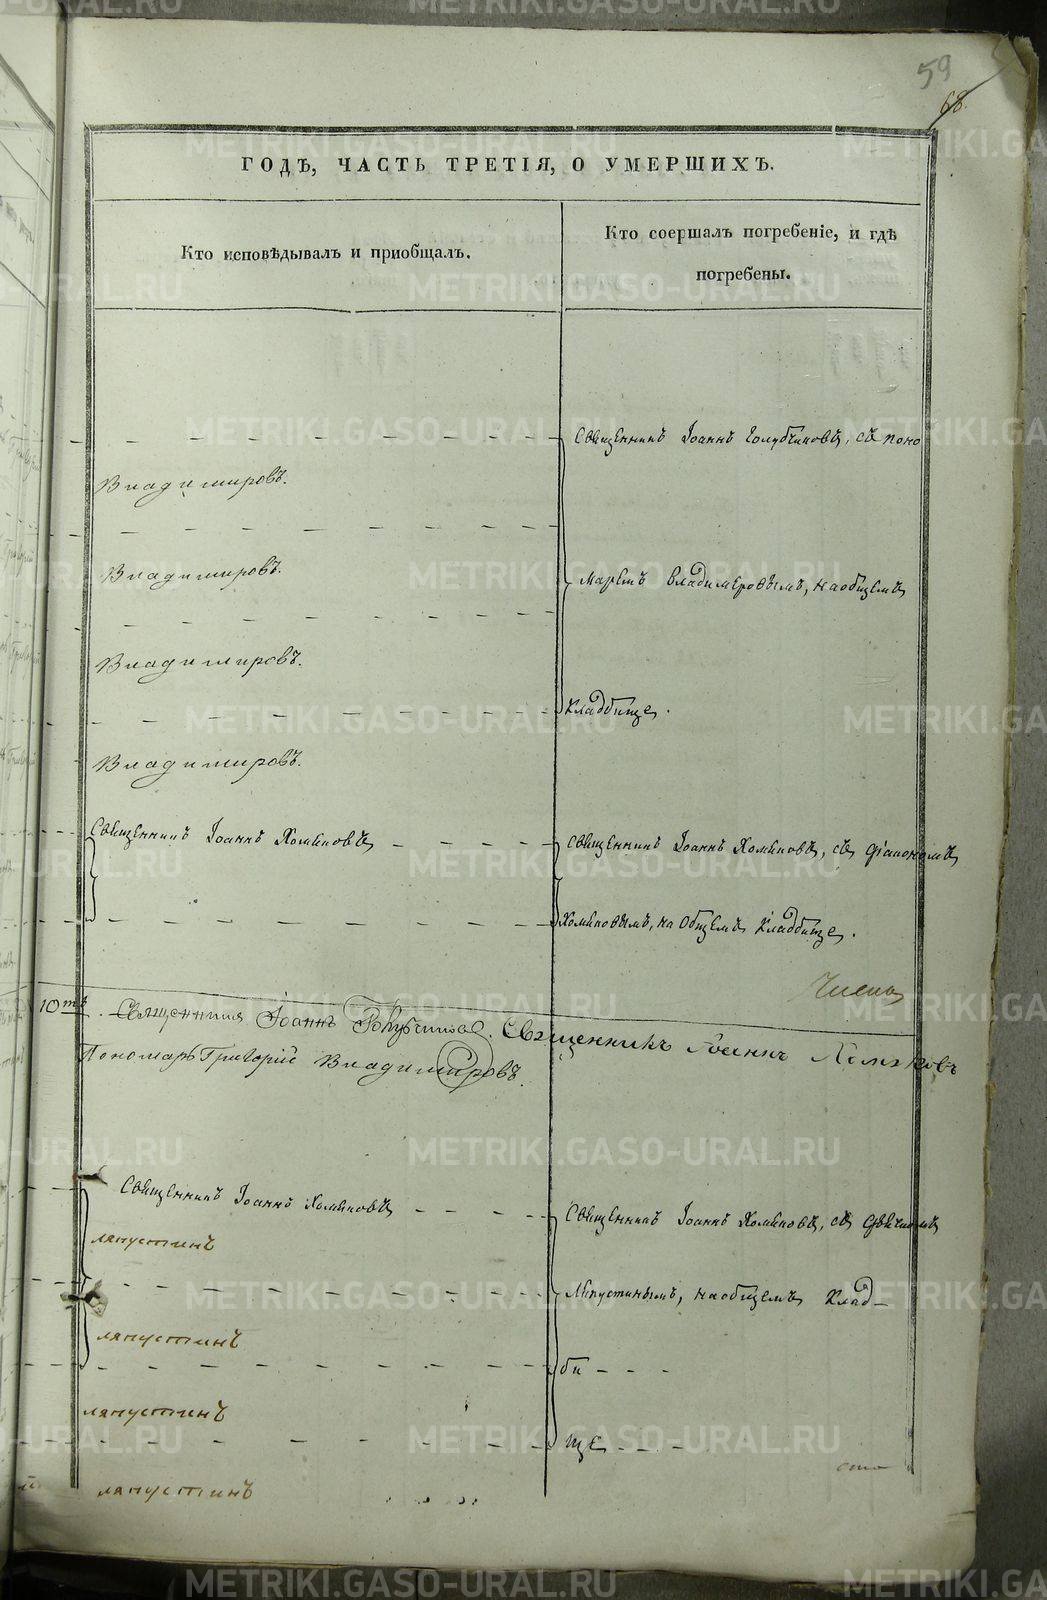 59
68.
ГОДѢ, ЧАСТЬ ТРЕТІЯ, О УМЕРШИХЪ.
Кто исповѣдывалъ и пріобщалъ.
Кто соершалъ погребеніе, и гдѣ
погребены.
Священникъ Іоаннъ Голубчиковъ, съ поно
Владимировъ.
Владимировъ.
маремъ Владимеровымъ, на общемъ
Владимировъ.
Кладбище.
Владимировъ.
Священникъ Іоаннъ Хомяковъ
Священникъ Іоаннъ Хомяковъ, съ діакономъ
Хомяковымъ, на общемъ Кладбище.
10тъ. Священникъ Іоаннъ Голубчиковъ. Священникъ Іоаннъ Хомяковъ
Пономарь Григорій Владимировъ.
Священникъ Іоаннъ Хомяковъ
Священникъ Іоаннъ Хомяковъ, съ дьячкомъ
ляпустинъ
Ляпустинымъ, на общемъ Клад-
ляпустинъ
би
ляпустинъ
ще
ляпустинъ
METRIKI.GASO-URAL.RU